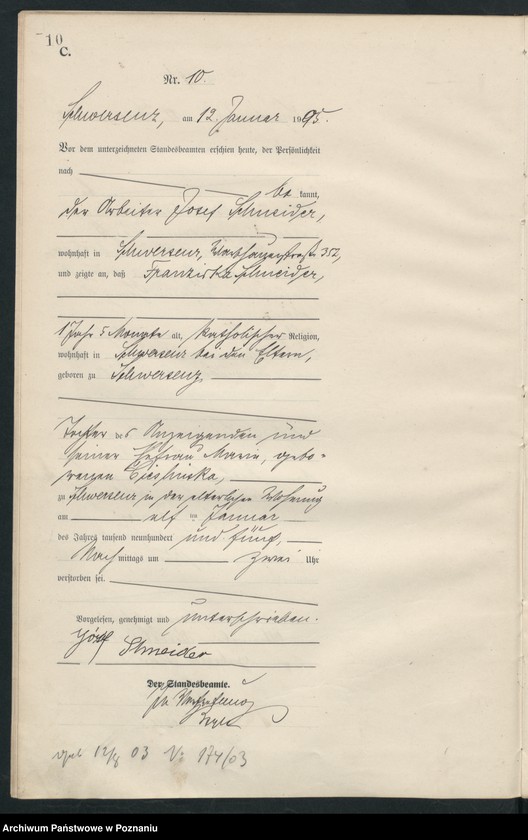 10
C.
Nr. 10.
Schwersenz, am 12. Januar 1905.
Vor dem unterzeichneten Standesbeamten erschien heute, der Persönlichkeit
nach
be kannt,
der Arbeiter Josef Schneider,
wohnhaft in Schwersenz, 352,
und zeigte an, daß Franziska Schneider,
1 Jahr 5 Monate alt, katholischer Religion,
wohnhaft in Schwersenz bei den Eltern,
geboren zu Schwersenz
Tochter des Anzeigenden und
seiner Ehefrau Marie, gebo-
renen
zu Schwersenz in der elterlichen Wohnung
am elf ten Januar
des Jahres tausend neunhundert und fünf,
Nach mittags um zwei Uhr
verstorben sei.
Vorgelesen, genehmigt und unterschrieben.
Józef Schneider
Der Standesbeamte.
In Vertretung
geb 12/8 03 No 174/03
Archiwum Państwowe w Poznaniu